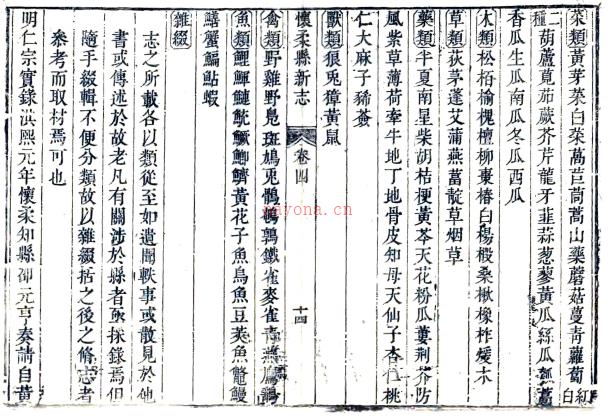 菜類黃芽菜白菜萵苣茼蒿山藥蘑菇蔓青蘿蔔紅白
二種葫蘆莧茄蕨芥芹龍牙韭蒜葱蓼黃瓜絲瓜瓠蘆
香瓜生瓜南瓜冬瓜西瓜
木類松栢榆槐檀柳棗椿白楊椴桑楸橡柞煖木
草類荻茅蓬艾蒲燕蒿靛草烟草
藥類半夏南星柴胡桔梗黃芩天花粉瓜蔞荆芥防
風紫草薄荷牽牛地丁地骨皮知母天仙子杏仁桃
仁大麻子豨薟
獸類狼兎獐黃鼠
懷柔縣新志
卷四
十四
禽類野雞野鳧斑鳩鵓鴿鶉鐵雀麥雀燕
魚類鯉鯶鰱魭鱖鯽鱭黃花子魚烏魚豆荚魚鼈鰻
鱔蟹鯿鮎蝦
雜綴
志之所載各以類從至如遺聞軼事或散見於他
書或傳述於故老凡有關涉於縣者亟採錄焉但
隨手綴輯不便分類故以雜綴括之後之修志者
叅考而取材焉可也
明仁宗實錄洪熙元年懷柔知縣卻元亨奏請自黃
yuyona.cn